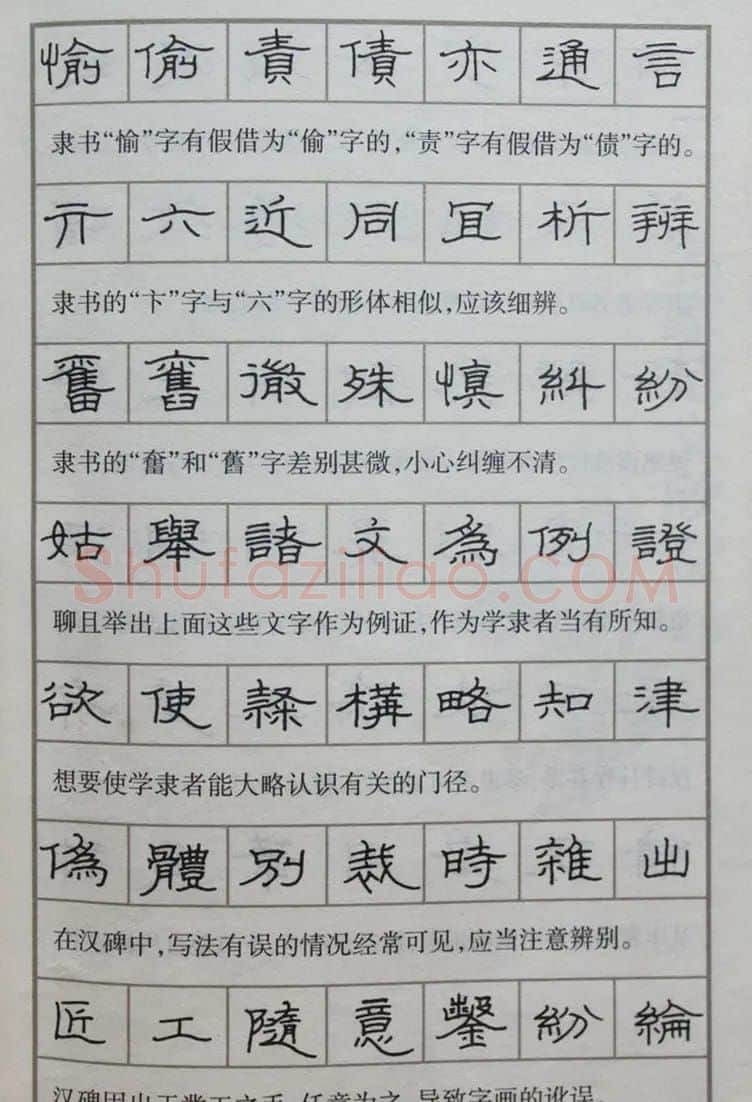 愉偷責債亦通言
隶书“愉”字有假借为“偷”字的,“责”字有假借为“债”字的。
亓六近同冝析辨
隶书的“卞”字与“六”字的形体相似,应该细辨。
奮舊微殊慎糾紛
隶书的“奮”和“舊”字差别甚微,小心纠缠不清。
姑舉諸文為例證
Shufaziliao.COM
聊且举出上面这些文字作为例证,作为学隶者当有所知。
欲使隸構略知津
想要使学隶者能大略认识有关的门径。
偽體別裁時雜出
在汉碑中,写法有误的情况经常可见,应当注意辨别。
匠工隨意鑿紛綸
汉碑因出于凿工之手,任意为之,导致字画的讹误。